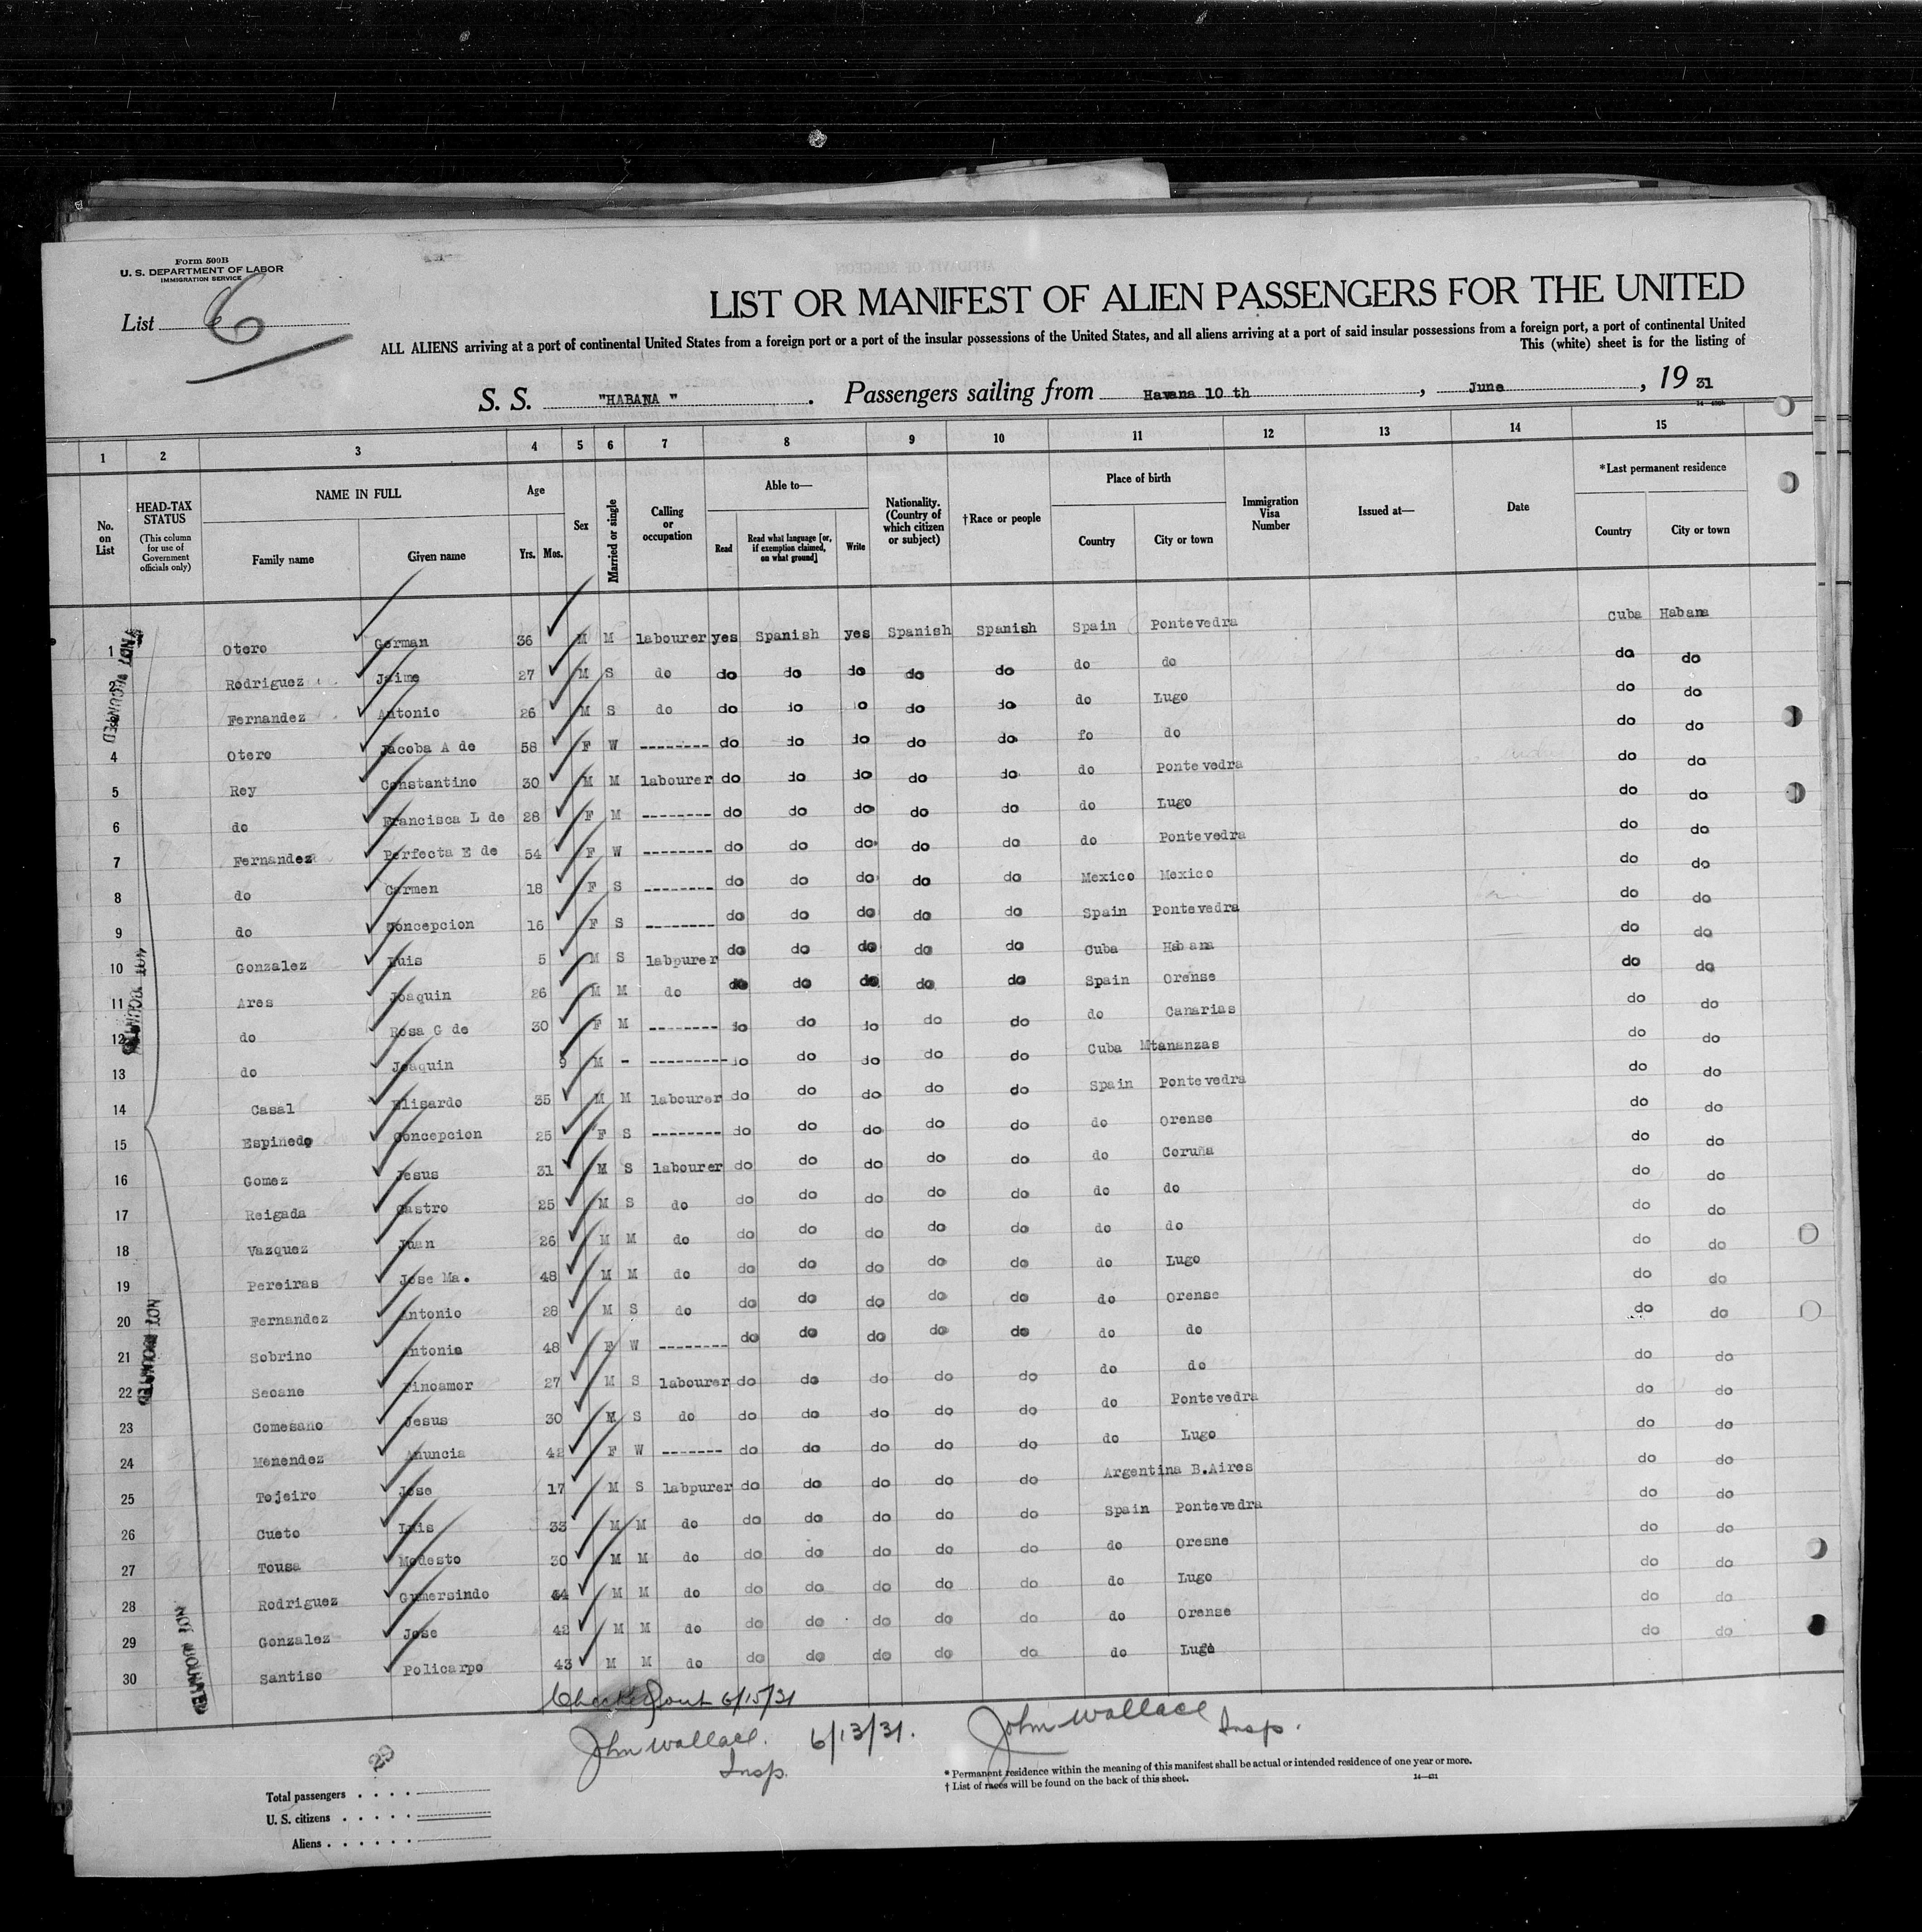 Form 500B
U. S. DEPARTMENT OF LABOR
IMMIGRATION SERVICE
List 6
LIST OR MANIFEST OF ALIEN PASSENGERS FOR THE UNITED
ALL ALIENS arriving at a port of continental United States from a foreign port or a port of the insular possessions of the United States, and all aliens arriving at a port of said insular possessions from a foreign port, a port of continental United
This (white) sheet is for the listing of
S. S. "HABANA" . Passengers sailing from Havana 10 th , June , 19 31
1 2 3 4 5 6 7 8 9 10 11 12 13 14 15
No. on List
HEAD-TAX STATUS (This column for use of Government officials only)
NAME IN FULL
Family name Given name
Age
Yrs. Mos.
Sex
Married or single
Calling or occupation
Able to—
Read Read what language [or, if exemption claimed, on what ground] Write
Nationality. (Country of which citizen or subject)
†Race or people
Place of birth
Country City or town
Immigration Visa Number
Issued at—
Date
*Last permanent residence
Country City or town
1 Otero German 36 M M labourer yes Spanish yes Spanish Spanish Spain Pontevedra Cuba Habana
2 Rodriguez Jaime 27 M S do do do do do do do do do do
3 Fernandez Antonio 26 M S do do do do do do do Lugo do do
4 Otero Jacoba A de 58 F W -------- do do do do do fo do do do
5 Rey Constantino 30 M M labourer do do do do do do Pontevedra do do
6 do Francisca L de 28 F M -------- do do do do do do Lugo do do
7 Fernandez Perfecta E de 54 F W -------- do do do do do do Pontevedra do do
8 do Carmen 18 F S -------- do do do do do Mexico Mexico do do
9 do Concepcion 16 F S -------- do do do do do Spain Pontevedra do do
10 Gonzalez Luis 5 M S labpurer do do do do do Cuba Habana do do
11 Ares Joaquin 26 M M do do do do do do Spain Orense do do
12 do Rosa G de 30 F M -------- do do do do do do Canarias do do
13 do Joaquin 9 M - --------- do do do do do Cuba Mtananzas do do
14 Casal Elisardo 35 M M labourer do do do do do Spain Pontevedra do do
15 Espinedo Concepcion 25 F S -------- do do do do do do Orense do do
16 Gomez Jesus 31 M S labourer do do do do do do Coruña do do
17 Reigada Castro 25 M S do do do do do do do do do do
18 Vazquez Juan 26 M M do do do do do do do do do do
19 Pereiras Jose Ma. 48 M M do do do do do do do Lugo do do
20 Fernandez Antonio 28 M S do do do do do do do Orense do do
21 Sobrino Antonia 48 F W -------- do do do do do do do do do
22 Seoane Finoamor 27 M S labourer do do do do do do do do do
23 Comesano Jesus 30 M S do do do do do do do Pontevedra do do
24 Menendez Anuncia 42 F W ------- do do do do do do Lugo do do
25 Tojeiro Jose 17 M S labpurer do do do do do Argentina B.Aires do do
26 Cueto Luis 33 M M do do do do do do Spain Pontevedra do do
27 Tousa Modesto 30 M M do do do do do do do Oresne do do
28 Rodriguez Gumersindo 44 M M do do do do do do do Lugo do do
29 Gonzalez Jose 42 M M do do do do do do do Orense do do
30 Santiso Policarpo 43 M M do do do do do do do Lugo do do
Checked out 6/15/31
John Wallace. 6/13/31. John Wallace Insp.
Insp.
* Permanent residence within the meaning of this manifest shall be actual or intended residence of one year or more.
† List of races will be found on the back of this sheet.
14—431
Total passengers . . . .
U. S. citizens . . . . .
Aliens . . . . . .